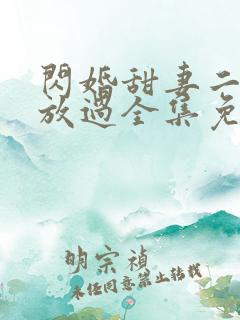 閃婚甜妻二
放過全集免
明宗禎
未经同意禁止转载